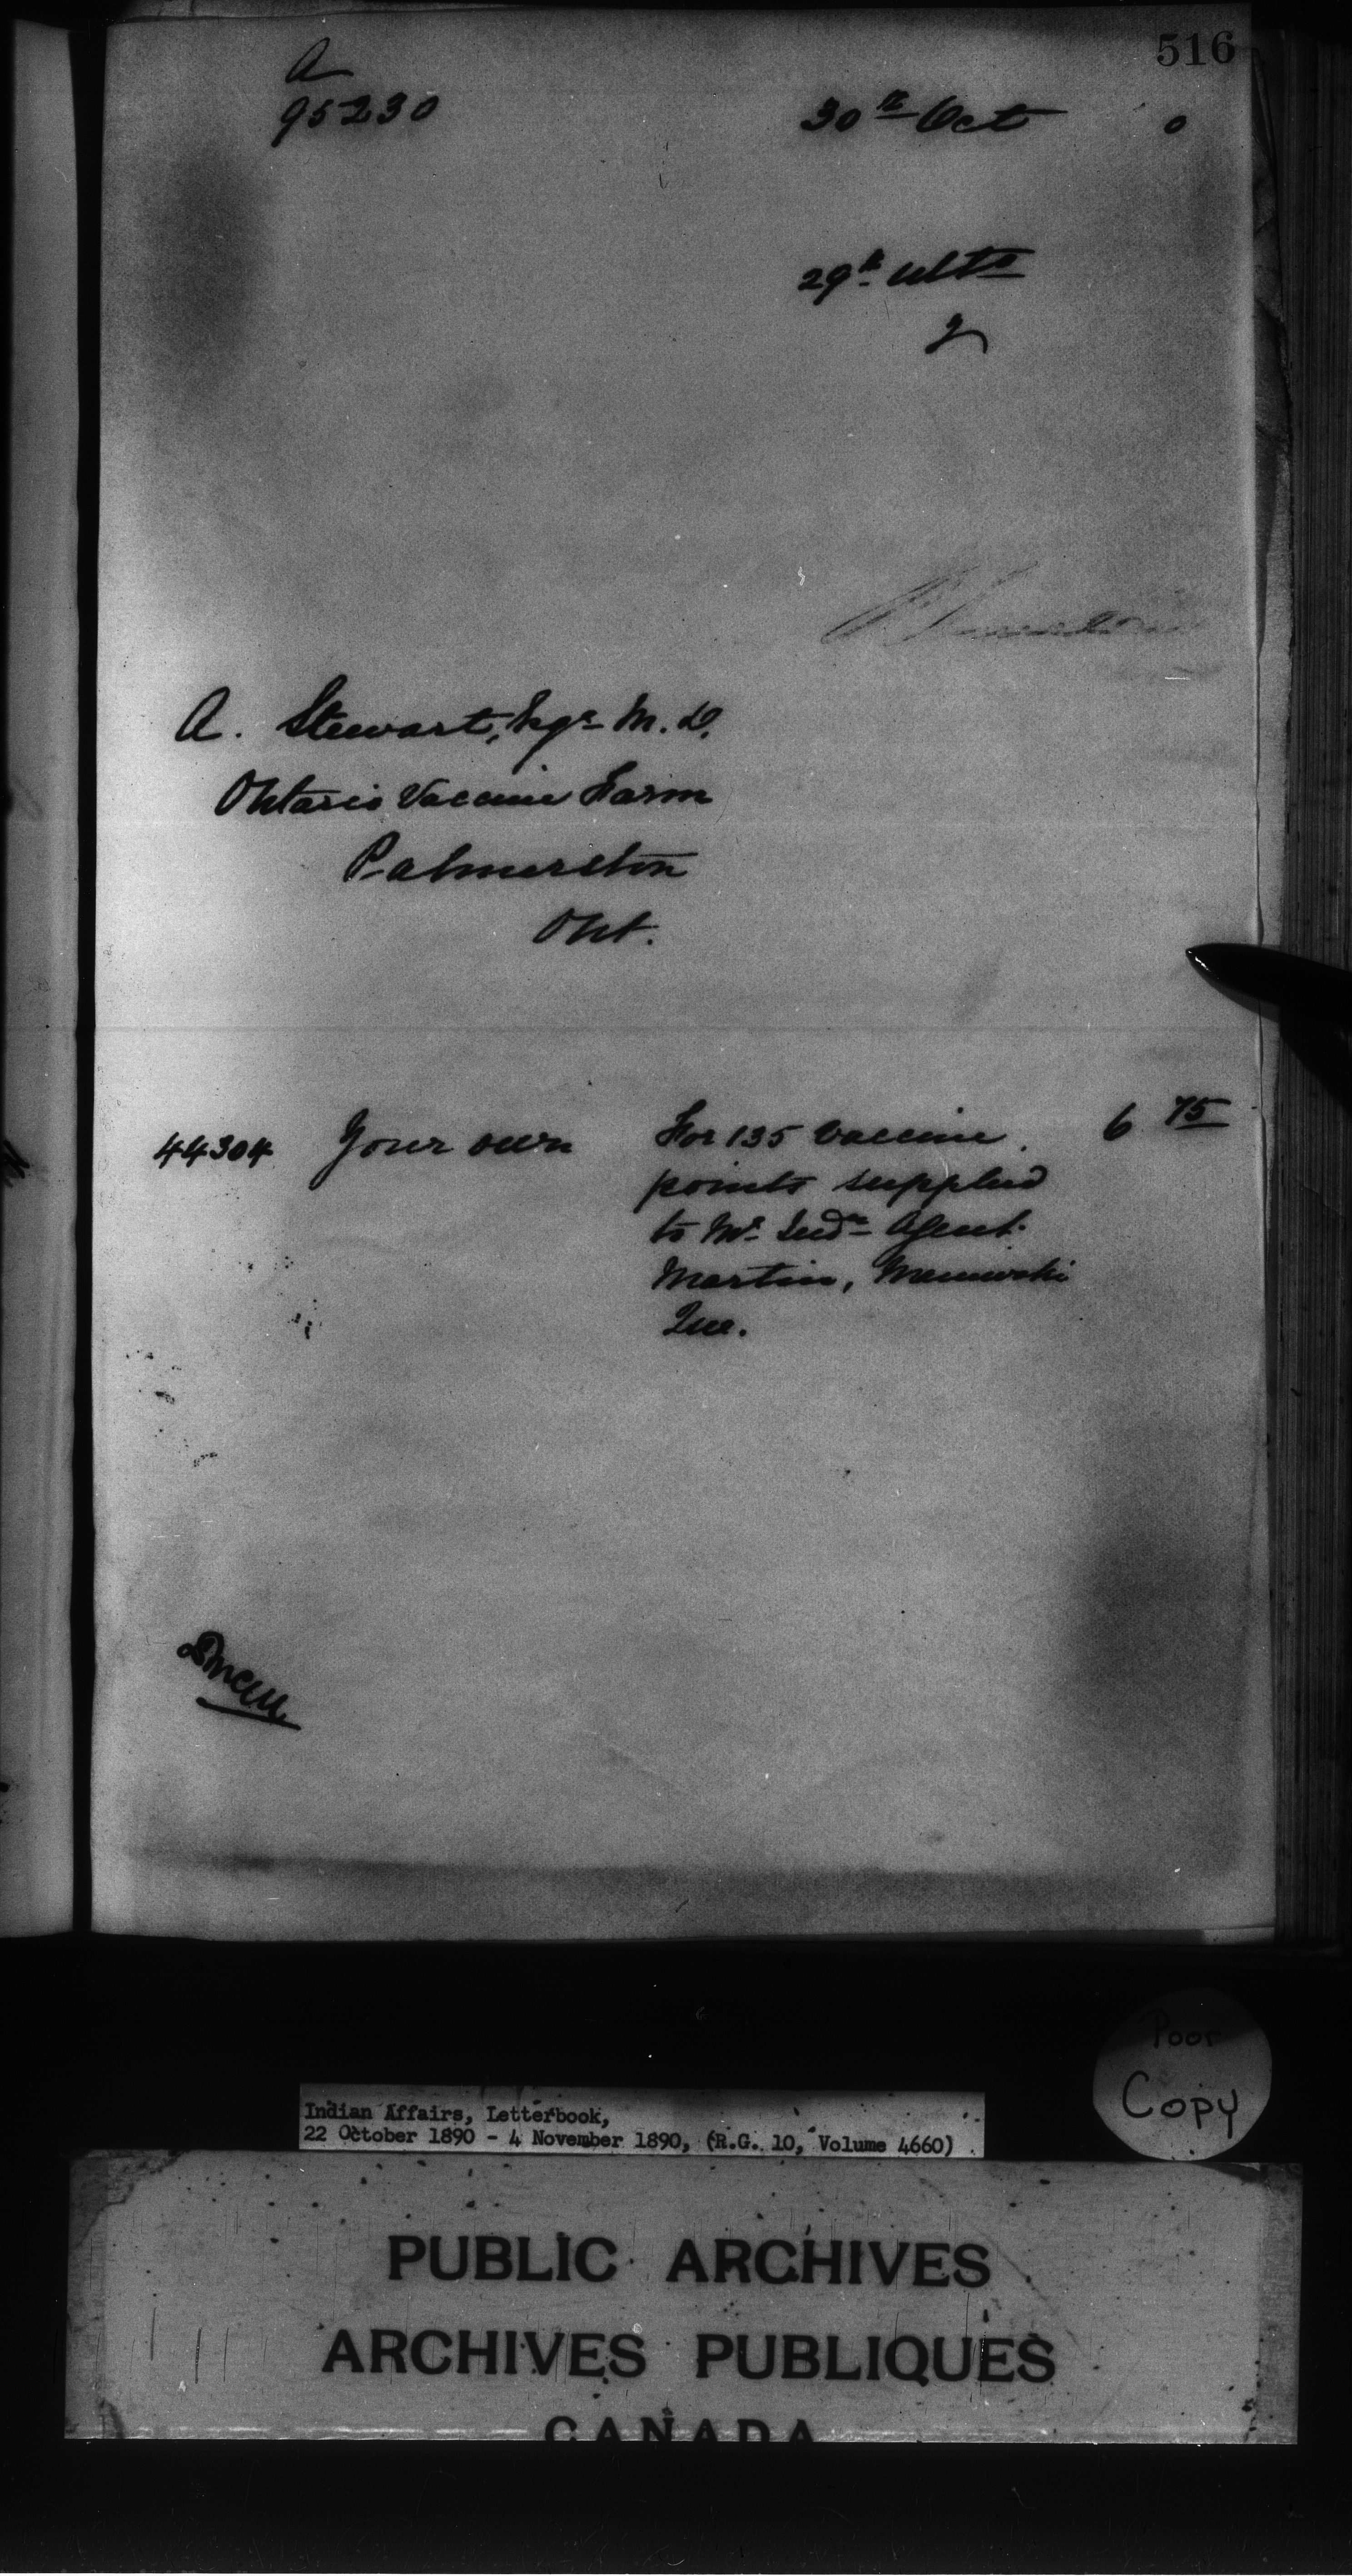 516
A
95230
30th Oct 0
29th ulto
2
A. Stewart, Esqr M.D.
Ontario Vaccine Farm
Palmerston
Ont.
44304 Your own For 135 vaccine 6 75
points supplied
to Mr. Indn Agent
Martin, Maniwaki
Que.
Poor
Copy
Indian Affairs, Letterbook,
22 October 1890 - 4 November 1890, (R.G. 10, Volume 4660)
PUBLIC ARCHIVES
ARCHIVES PUBLIQUES
CANADA